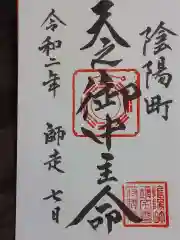 陰陽町
天之御中主命
令和二年
師走七日